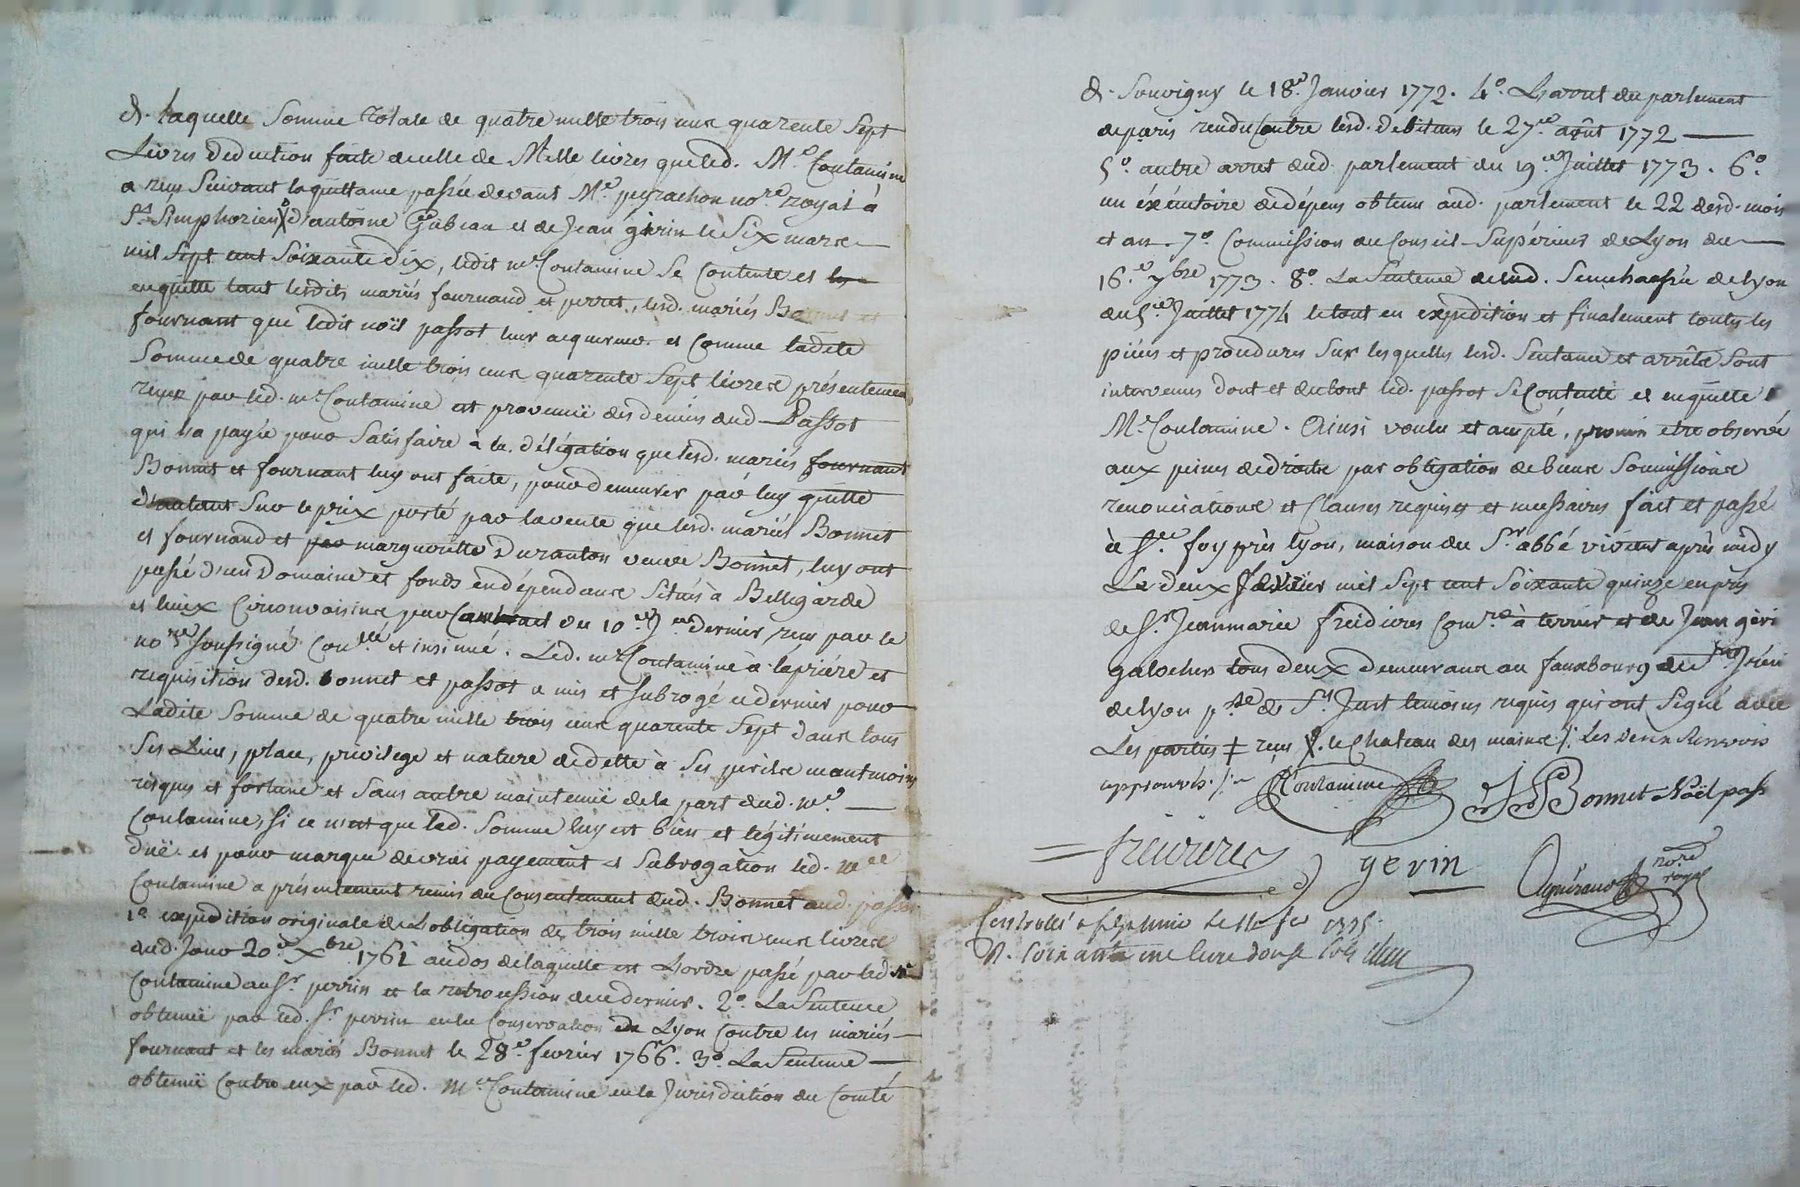 & laquelle Somme Totale de quatre mille trois cens quarente Sept
Livres déduction faite de celle de Mille livres que led. Me. Contamine
a reçu Suivant la quittance passée devant Me. peyrachon nore. royal à
St. Simphorien d'antoine et de Jean gerin le Six mars
mil Sept cent Soixante dix, ledit me Contamine Se Contente et
en quitte tant lesdits mariés fournand et perret, lesd. mariés Bonnet et
fournant que ledit noël passot leur acquereur. et Comme ladite
Somme de quatre mille trois cens quarente Sept livres présentement
reçue par led. me Contamine est provenuë des deniers dud. Passot
qui l'a payée pour Satisfaire à la délégation que lesd. mariés fournant
Bonnet et fournant luy ont faite, pour demeurer par luy quitte
d'autant Sur le prix porté par la vente que lesd. mariés Bonnet
et fournand et par margueritte Duranton veuve Bonnet, luy ont
passé d'un Domaine et fonds en dépendans Situés à Bellegarde
et lieux Circonvoisins par Contrait du 10e. dernier, reçu par le
nore. Soussigné Conllé et insinué. Led. me Contamine à la priére et
requisition desd. Bonnet et passot a mis et Subrogé ce dernier pour
Ladite Somme de quatre mille trois cens quarente Sept dans tous
Ses Lieu, place, privilege et nature de dette à Ses perils neantmoins
risques et fortune et Sans autre maintenuë de la part dud. me.
Contamine, Si ce n'est que lad. Somme luy est bien et légitimement
duë. et pour marque de vrai payement et Subrogation led. me
Contamine a présentement remis du Consentement dud. Bonnet aud. passot
1o expedition originale de L'obligation de trois mille trois cens livres
dud. Jour 20e. Xbre. 1761 au dos de laquelle est L'ordre passé par led. me
Contamine au Sr. perrin et la retrocession de ce dernier. 2o. La Sentence
obtenuë par led. Sr. perrin en la Conservation de Lyon Contre les mariés
fournant et les mariés Bonnet le 28e. fevrier 1766. 3o. La Sentence
obtenuë Contre eux par led. Me Contamine en la Jurisdiction du Comté
& Souvigny le 18e. Janvier 1772. 4o. L'arret du parlement
de paris rendu Contre lesd. debiteurs le 27e. août 1772
5o. autre arret dud. parlement du 19e. Juillet 1773. 6o.
un éxécutoire de dépens obtenu aud. parlement le 22 desd. mois
et an. 7o. Commission du Conseil Supérieur de Lyon du
16.e 7bre 1773. 8o. La Sentence de lad. Senechaussée de lyon
du 5e. Juillet 1774 le tout en expedition et finalement toutes les
piéces et procedures Sur lesquelles lesd. Sentence et arrêts Sont
intervenus dont et du tout led. passot Se Contente et en quitte
Me. Contamine. Ainsi voulu et accepté, promis etre observé
aux peines de droit par obligation de biens Soumissions
renonciations et Clauses requises et necessaires fait et passé
à Ste. foy près lyon, maison du Sr abbé vivent après midy
Le deux fevrier mil Sept cent Soixante quinze en prés
de Sr. Jeanmarie freidieres Comre à terrier et de Jean géri
galocher tous deux demeurans au fauxbourg de St. Iréni
de lyon psse de St. Just temoins requis qui ont Signé avec
Les parties ‡ reçu le Chateau des mains Les deux Renvois
approuvés.
Contamine JB Bonnet Noël pass
freidieres gerin nore. royal
Controllé le 1775.
R. Soixante une livre douse Sols